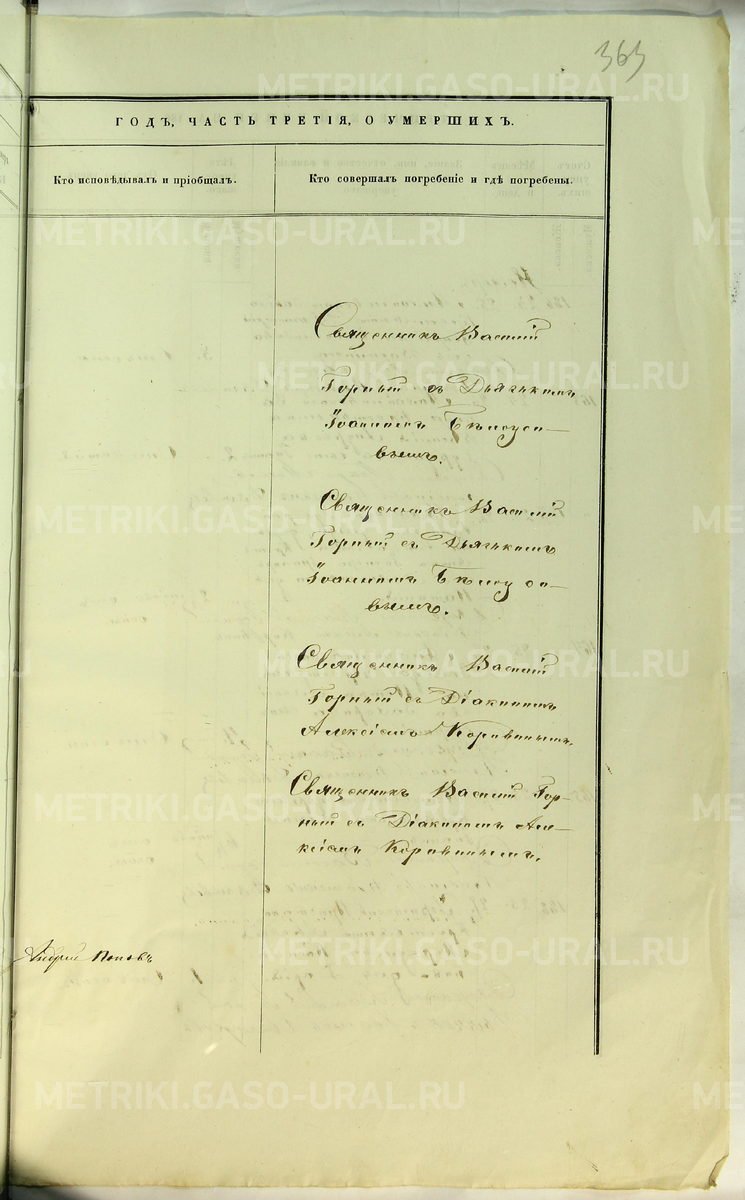 363
ГОДЪ, ЧАСТЬ ТРЕТІЯ, О УМЕРШИХЪ.
Кто исповѣдывалъ и пріобщалъ.
Кто совершалъ погребеніе и гдѣ погребены.
Священникъ Василій
Горный съ Дьячькомъ
Іоанномъ Бѣлоусо-
вымъ.
Священникъ Василій
Горный съ Дьячькомъ
Іоанномъ Бѣлоусо-
вымъ.
Священникъ Василій
Горный съ Діакономъ
Алексіемъ Коровинымъ.
Священникъ Василій Гор-
ный съ Діакономъ Але-
ксіемъ Коровинымъ.
Андрей Поповъ
METRIKI.GASO-URAL.RU